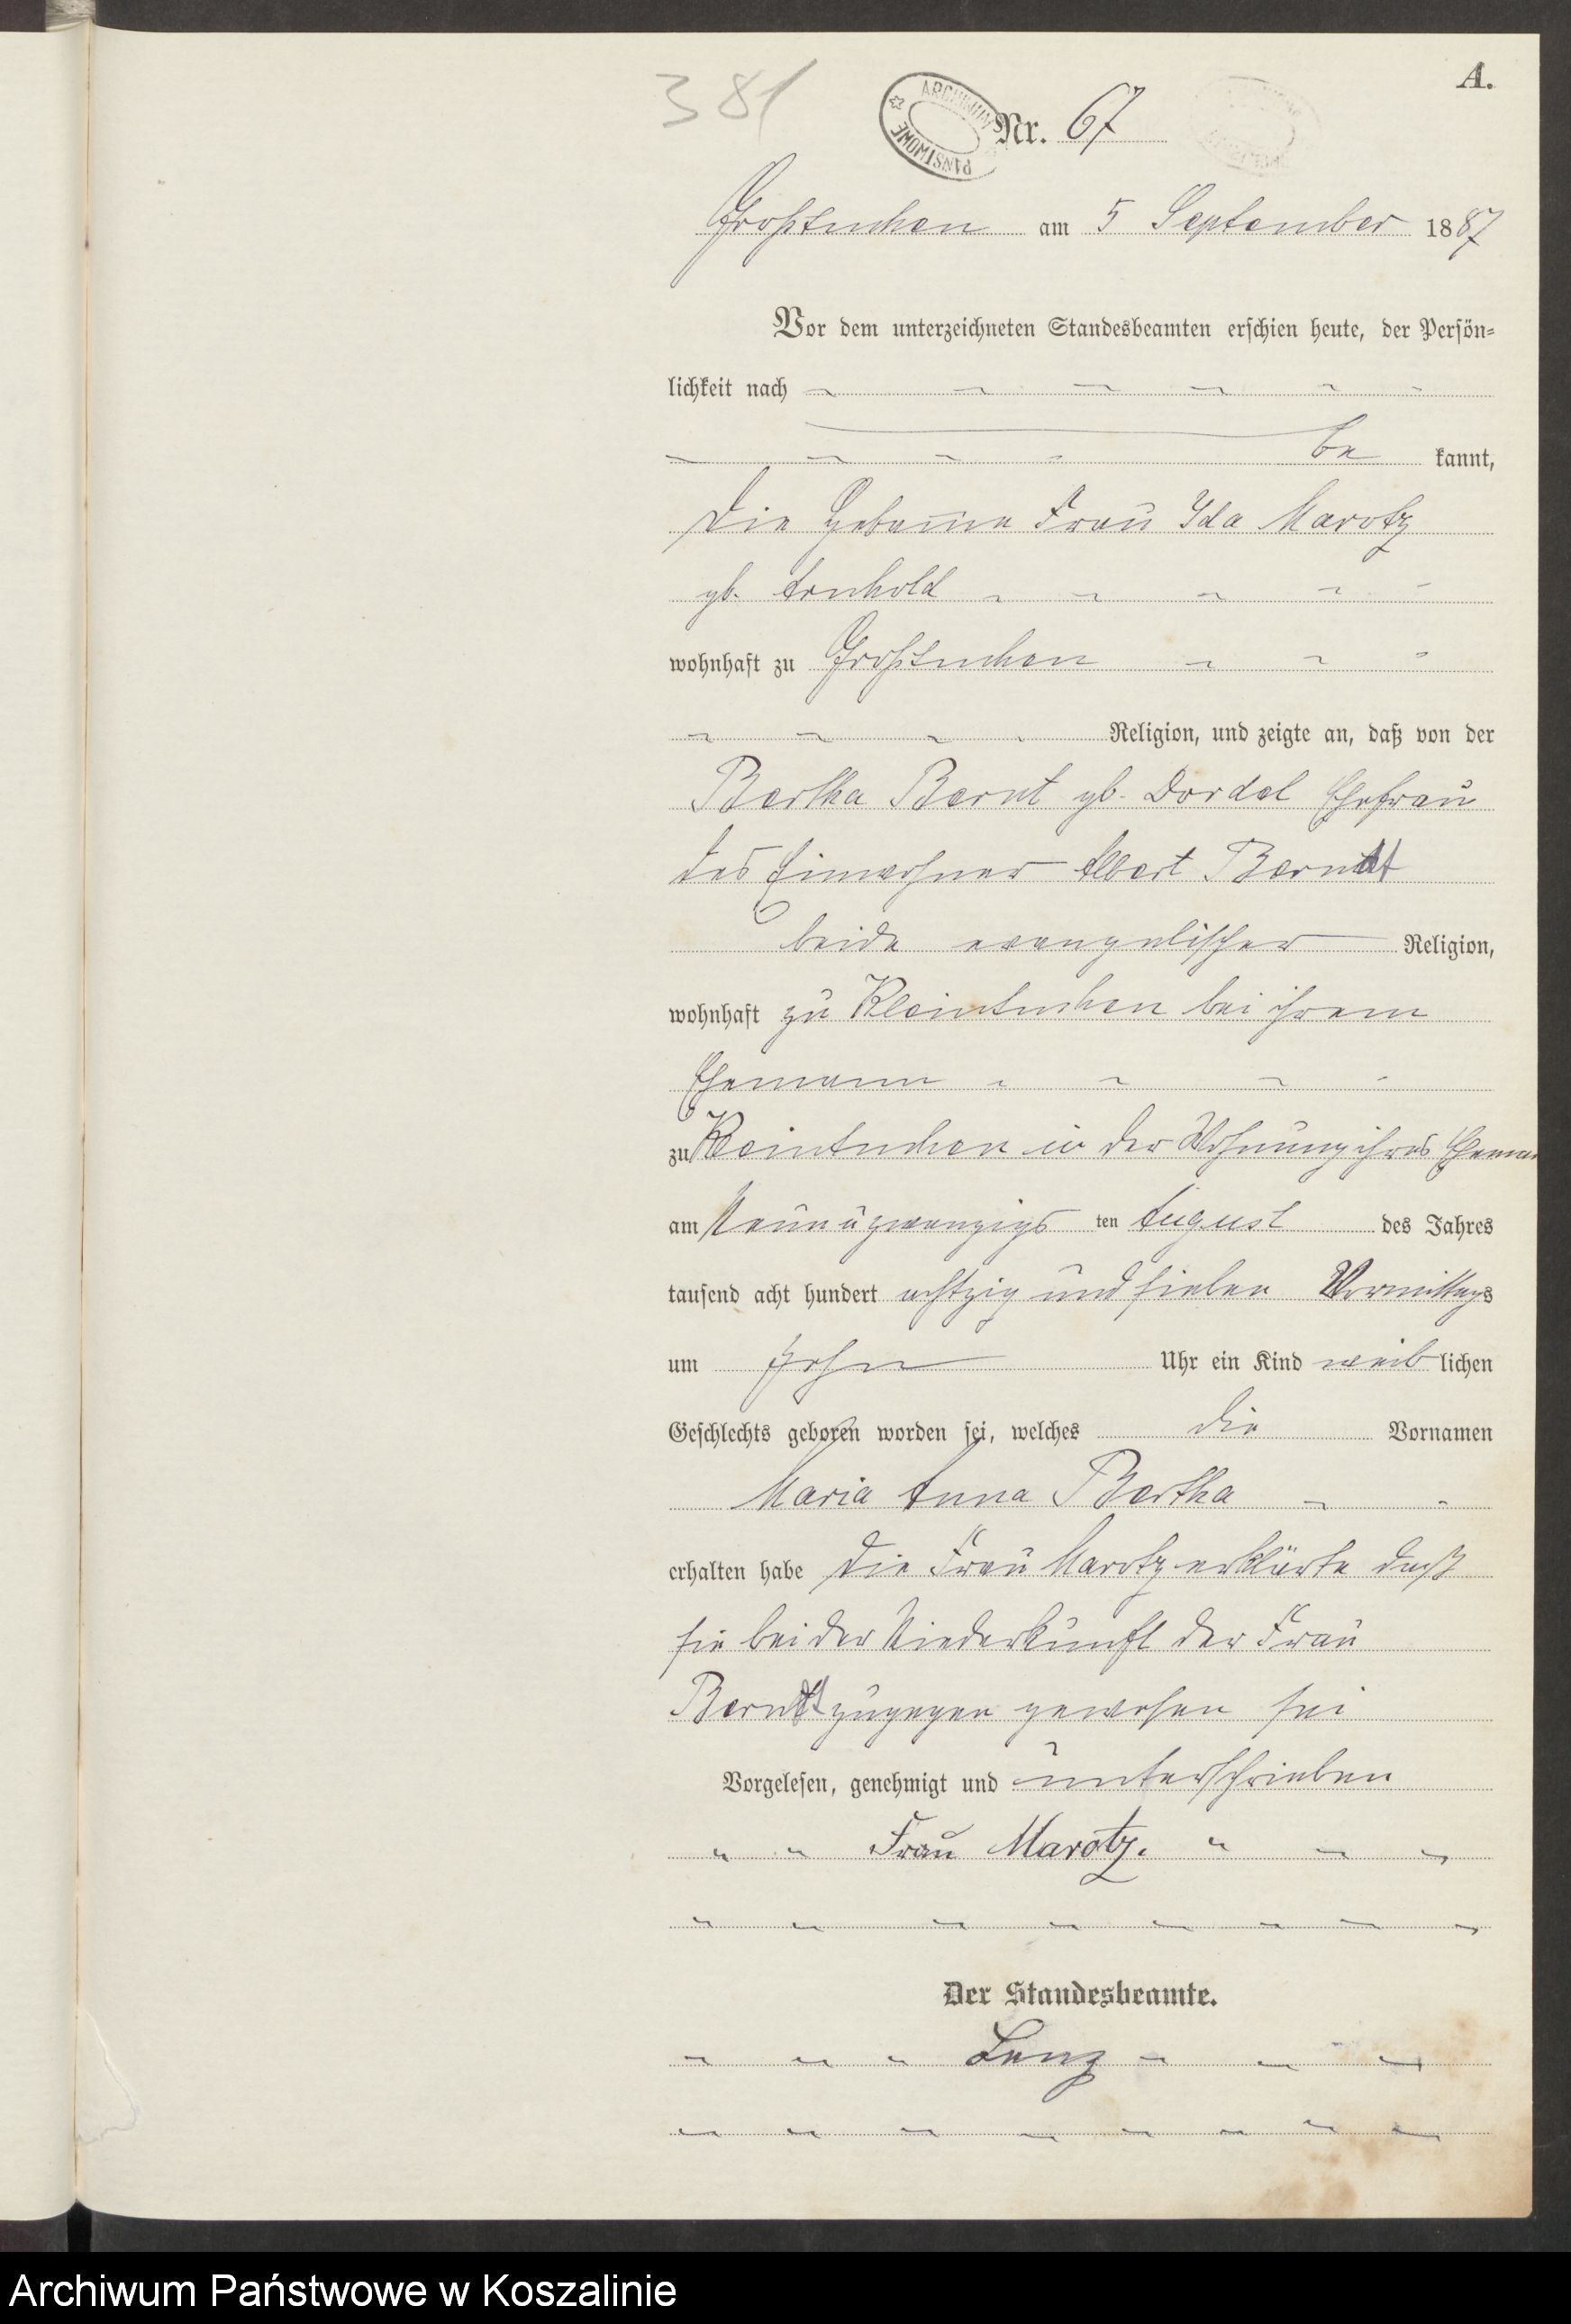 A.
381
ARCHIWUM PAŃSTWOWE
Nr. 67
Großtuchen am 5 September 1887
Vor dem unterzeichneten Standesbeamten erschien heute, der Persön-
lichkeit nach
be kannt,
die Hebamme Frau Ida Marotz
gb. Arnhold
wohnhaft zu Großtuchen
Religion, und zeigte an, daß von der
Bertha Bernt gb. Dordel Ehefrau
des Einwohner Albert Berndt
beide evangelischer Religion,
wohnhaft zu Kleintuchen bei ihrem
Ehemann
zu Kleintuchen in der Wohnung ihres
am Neun u zwanzigs ten August des Jahres
tausend acht hundert achtzig und sieben Vormittags
um zehn Uhr ein Kind weib lichen
Geschlechts geboren worden sei, welches die Vornamen
Maria Anna Bertha
erhalten habe die Frau Marotz erklärte daß
sie bei der Niederkunft der Frau
Berndt zugegen gewesen sei
Vorgelesen, genehmigt und unterschrieben
Frau Marotz.
Der Standesbeamte.
Lenz
Archiwum Państwowe w Koszalinie